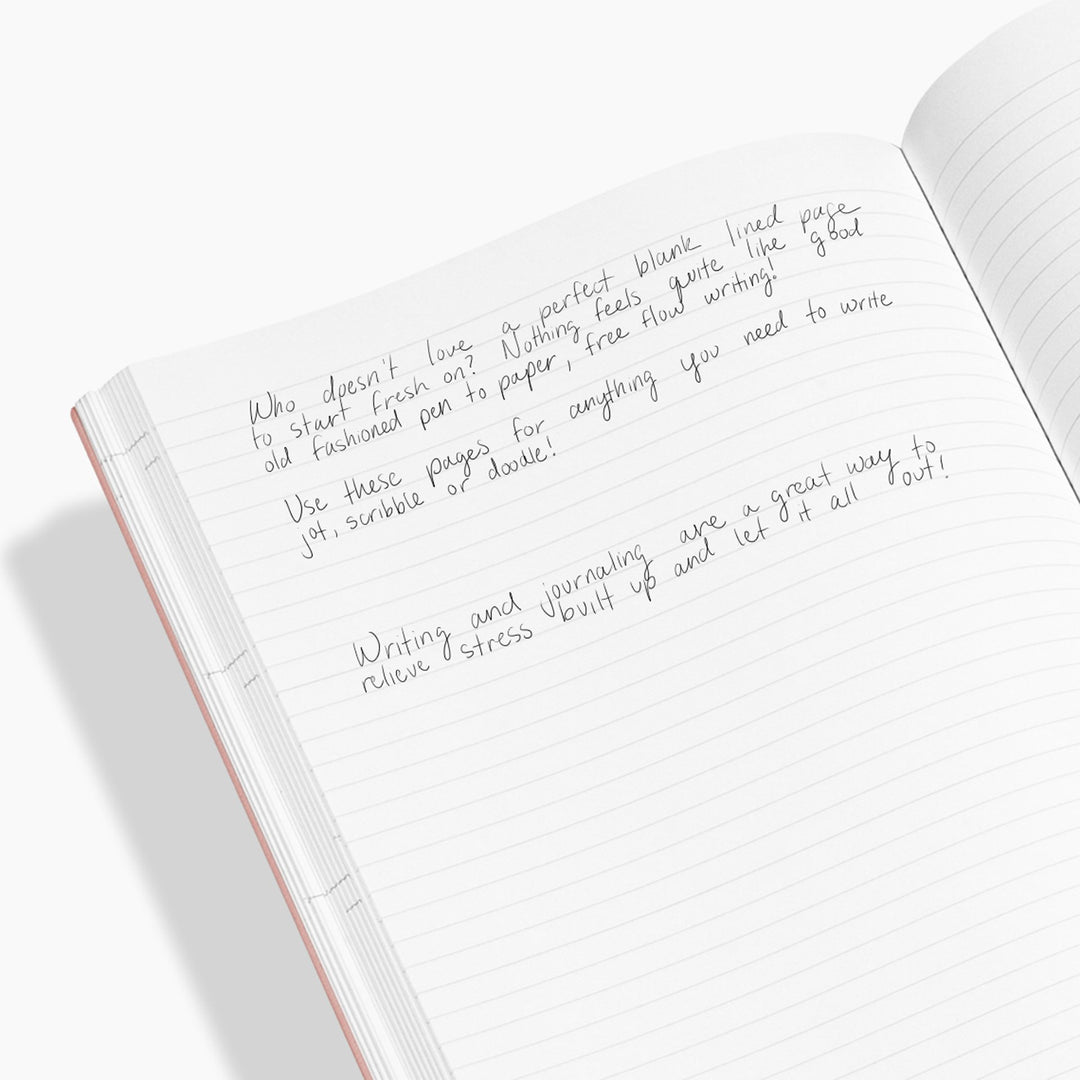 Who doesn't love a perfect blank lined page
to start fresh on? Nothing feels quite like good
old fashioned pen to paper, free flow writing!
Use these pages for anything you need to write
jot, scribble or doodle!
Writing and journaling are a great way to
relieve stress built up and let it all out!